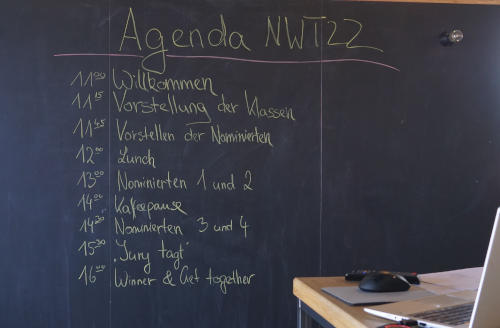 Agenda NWT22
11⁰⁰ Willkommen
11¹⁵ Vorstellung der Klassen
11⁴⁵ Vorstellen der Nominierten
12⁰⁰ Lunch
13⁰⁰ Nominierten 1 und 2
14⁰⁰ Kaffeepause
14³⁰ Nominierten 3 und 4
15³⁰ "Jury tagt"
16⁰⁰ Winner & Get together